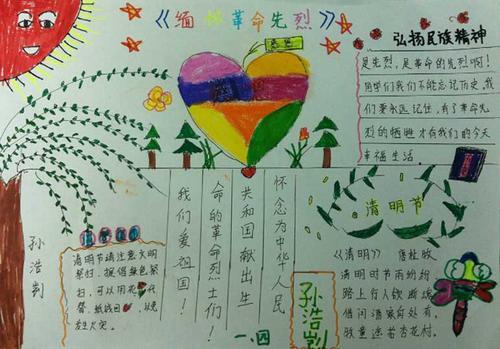 《缅怀革命先烈》
弘扬民族精神
是先烈,是革命的先烈啊!
同学们我们不能忘记历史,我
们要永远记住,有了革命先
烈的牺牲才有我们的今天
幸福生活。
怀念为中华人民
共和国献出生
命的革命烈士们!
我们爱祖国!
清明节
《清明》 唐 杜牧
清明时节雨纷纷
路上行人欲断魂
借问酒家何处有
牧童遥指杏花村。
清明节请注意文明
祭扫,提倡绿色祭
扫,可以用花
替,纸钱
发生火灾。
一.四